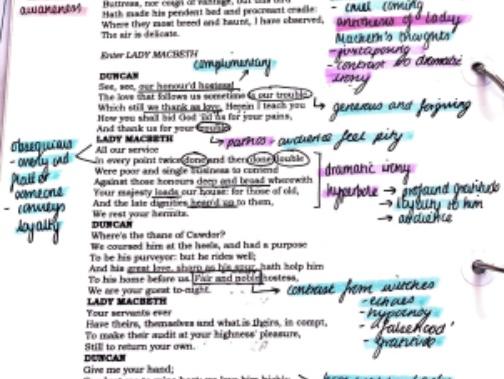 awareness
Buttress, nor coign of vantage, but this bird
Hath made his pendent bed and procreant cradle:
Where they most breed and haunt, I have observed,
The air is delicate.
coming
of lady
Macbeth's thoughts
- juxtaposing
- contrast to dramatic
irony
Enter LADY MACBETH
complimentary
DUNCAN
See, see, our honour'd hostess!
The love that follows us sometime is our trouble,
Which still we thank as love. Herein I teach you
How you shall bid God 'ild us for your pains,
And thank us for your trouble.
generous and forgiving
LADY MACBETH
pathos - audience feel pity
All our service
In every point twice done and then done double
Were poor and single business to contend
Against those honours deep and broad wherewith
Your majesty loads our house: for those of old,
And the late dignities heap'd up to them,
We rest your hermits.
obsequious
someone
- conveys
loyalty
dramatic irony
hyperbole → profound gratitude
→ loyalty to him
→ audience
DUNCAN
Where's the thane of Cawdor?
We coursed him at the heels, and had a purpose
To be his purveyor: but he rides well;
And his great love, sharp as his spur, hath holp him
To his home before us. Fair and noble hostess,
We are your guest to-night.
contrast from witches
- echoes
- hypocrisy
- 'falsehood'
- gratitude
LADY MACBETH
Your servants ever
Have theirs, themselves and what is theirs, in compt,
To make their audit at your highness' pleasure,
Still to return your own.
DUNCAN
Give me your hand;